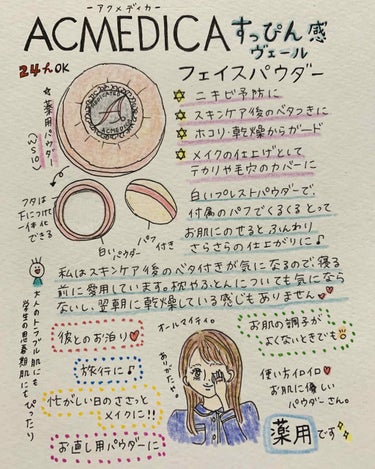 ーアクメディカー
ACMEDICA すっぴん感
ヴェール
24h OK
フェイスパウダー
☆薬用パウダー
MEDICATED
A
ACMEDICA
✡ ニキビ予防に
✡ スキンケア後のベタつきに
✡ ホコリ・乾燥からガード
✡ メイクの仕上げとして
テカリや毛穴のカバーに
フタは
下につけて
一体化
できる
白いパウダー
パフ付き
白いプレストパウダーで、
付属のパフでくるくるとって
お肌にのせるとふんわり
さらさらの仕上がりに♪
私はスキンケア後のベタ付きが気になるので寝る
前に愛用しています。枕やふとんについても気になら
ないし、翌朝に乾燥している感じもありません♥
大人のトラブル肌にも
学生の思春期肌にもぴったり
彼とのお泊り♥
旅行に♪
忙がしい日のささっと
メイクに!!
お直し用パウダーに
オールマイティ。
ありがたや。
お肌の調子が
よくないときでも
使い方イロイロ♥
お肌に優しい
パウダーさん。
薬用です